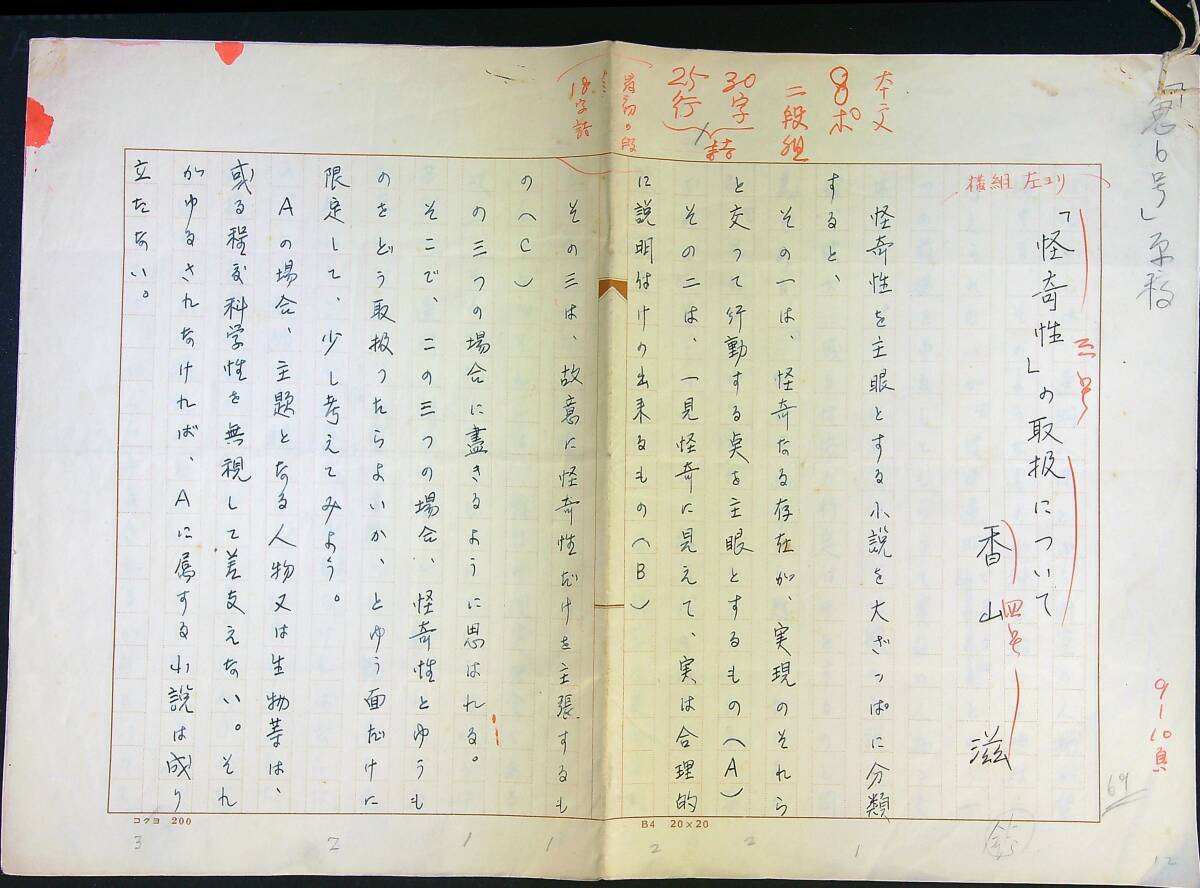 「鬼6号」原稿
9―10頁
69
12
横組 左ヨリ
「怪奇性」の取扱について
三号
香山 滋
四号
本文
8ポ
二段組
30字詰
25行
最初の段
18字詰
怪奇性を主眼とする小説を大ざっぱに分類
すると、
その一は、怪奇なる存在が、実現のそれら
と交って行動する点を主眼とするもの(A)
その二は、一見怪奇に見えて、実は合理的
に説明付けの出来るもの(B)
その三は、故意に怪奇性だけを主張するも
の(C)
の三つの場合に盡きるように思はれる。
そこで、この三つの場合、怪奇性とゆうも
のをどう取扱ったらよいか、とゆう面だけに
限定して、少し考えてみよう。
Aの場合、主題となる人物又は生物等は、
或る程度科学性を無視して差支えない。それ
がゆるされなければ、Aに属する小説は成り
立たない。
コクヨ 200
B4 20×20
3
2
1
1
2
2
1